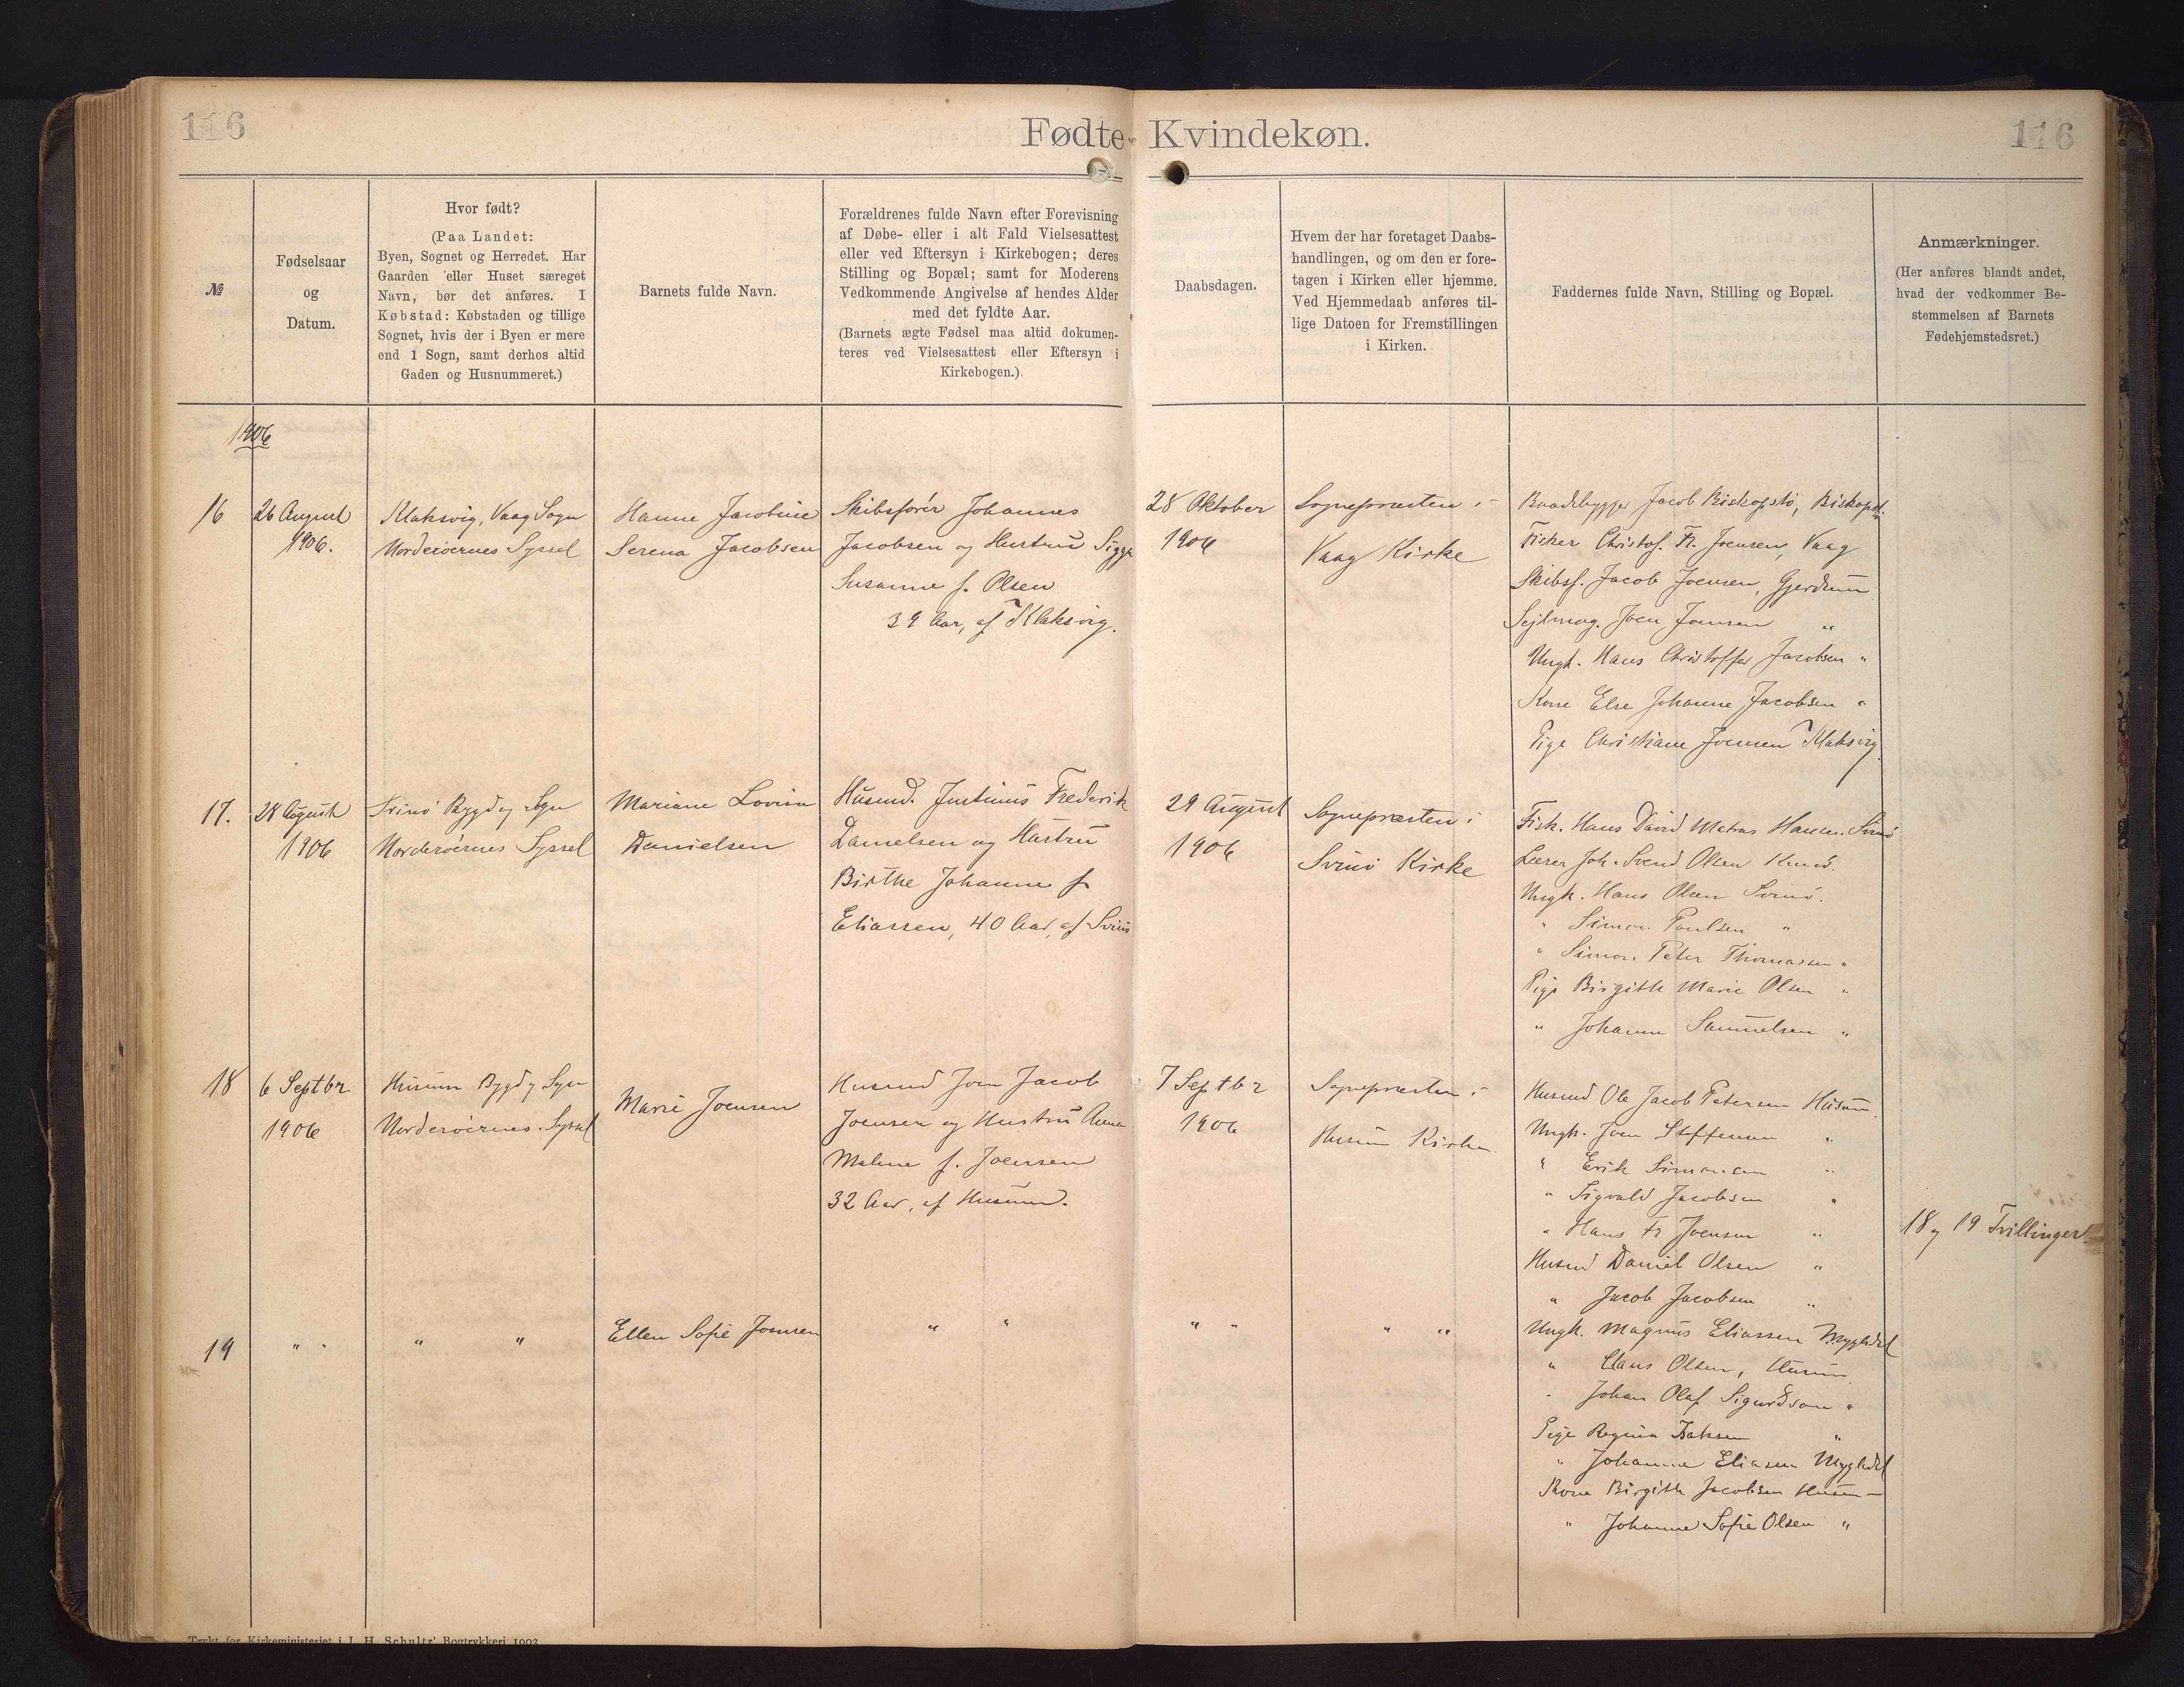 116
Fødte Kvindekøn.
116
№
Fødselsaar
og
Datum.
Hvor født?
(Paa Landet:
Byen, Sognet og Herredet. Har
Gaarden eller Huset særeget
Navn, bør det anføres. I
Købstad: Købstaden og tillige
Sognet, hvis der i Byen er mere
end 1 Sogn, samt derhos altid
Gaden og Husnummeret.)
Barnets fulde Navn.
Forældrenes fulde Navn efter Forevisning
af Døbe- eller i alt Fald Vielsesattest
eller ved Eftersyn i Kirkebogen; deres
Stilling og Bopæl; samt for Moderens
Vedkommende Angivelse af hendes Alder
med det fyldte Aar.
(Barnets ægte Fødsel maa altid dokumen-
teres ved Vielsesattest eller Eftersyn i
Kirkebogen.)
Daabsdagen.
Hvem der har foretaget Daabs-
handlingen, og om den er fore-
tagen i Kirken eller hjemme.
Ved Hjemmedaab anføres til-
lige Datoen for Fremstillingen
i Kirken.
Faddernes fulde Navn, Stilling og Bopæl.
Anmærkninger.
(Her anføres blandt andet,
hvad der vedkommer Be-
stemmelsen af Barnets
Fødehjemstedsret.)
1906
16
26 August
1906.
Klaksvig, Vaag Sogn
Norderøernes Syssel
Hanne Jacobine
Serena Jacobsen
Skibsfører Johannes
Jacobsen og Hustru
Susanne f. Olsen
39 Aar, af Klaksvig.
28 Oktober
1906
Sognepræsten i
Vaag Kirke
Baadebygger Jacob Biskopstø, Biskopstø
Fisker Christof. Fr. Joensen, Vaag
Skibsf. Jacob Joensen, Gjerdum
Sejlmag. Joen Joensen "
Ungk. Hans Christoffer Jacobsen "
Kone Else Johanne Jacobsen "
Pige Christiane Joensen Klaksvig
17.
28 August
1906
Svinø Bygd og Sogn
Norderøernes Syssel
Mariane Lovisa
Danielsen
Husmd. Justinus Frederik
Danielsen og Hustru
Birthe Johanne f
Eliassen, 40 Aar, af Svinø
29 August
1906
Sognepræsten i
Svinø Kirke
Fisk. Hans David Matras Hansen. Svinø
Lærer Joh. Svend Olsen Kunø.
Ungk. Hans Olsen Svinø.
" Simon Poulsen "
" Simon Peter Thomassen "
Pige Birgithe Marie Olsen "
" Johanne Samuelsen "
18
6 Septbr
1906
Husum Bygd og Sogn
Norderøernes Syssel
Marie Joensen
Husmd Joen Jacob
Joensen og Hustru Anna
Malene f. Joensen
32 Aar, af Husum.
7 Septbr
1906
Sognepræsten i
Husum Kirke
Husmd Ole Jacob Petersen Husum.
Ungk. Joen Steffensen "
" Erik Simonsen "
" Sigvald Jacobsen "
" Hans Fr Joensen "
Husmd Daniel Olsen "
" Jacob Jacobsen "
18 og 19 Tvillinger
19
" "
" "
Ellen Sofie Joensen
" "
" "
" "
Ungk. Magnus Eliassen Mygledal
" Claus Olsen, Husum
" Johan Olaf Sigurdson "
Pige Regina Isaksen "
" Johanne Eliasen Mygledal
Kone Birgithe Jacobsen Husum
" Johanne Sofie Olsen "
Trykt for Kirkeministeriet i J. H. Schultz' Bogtrykkeri 1903